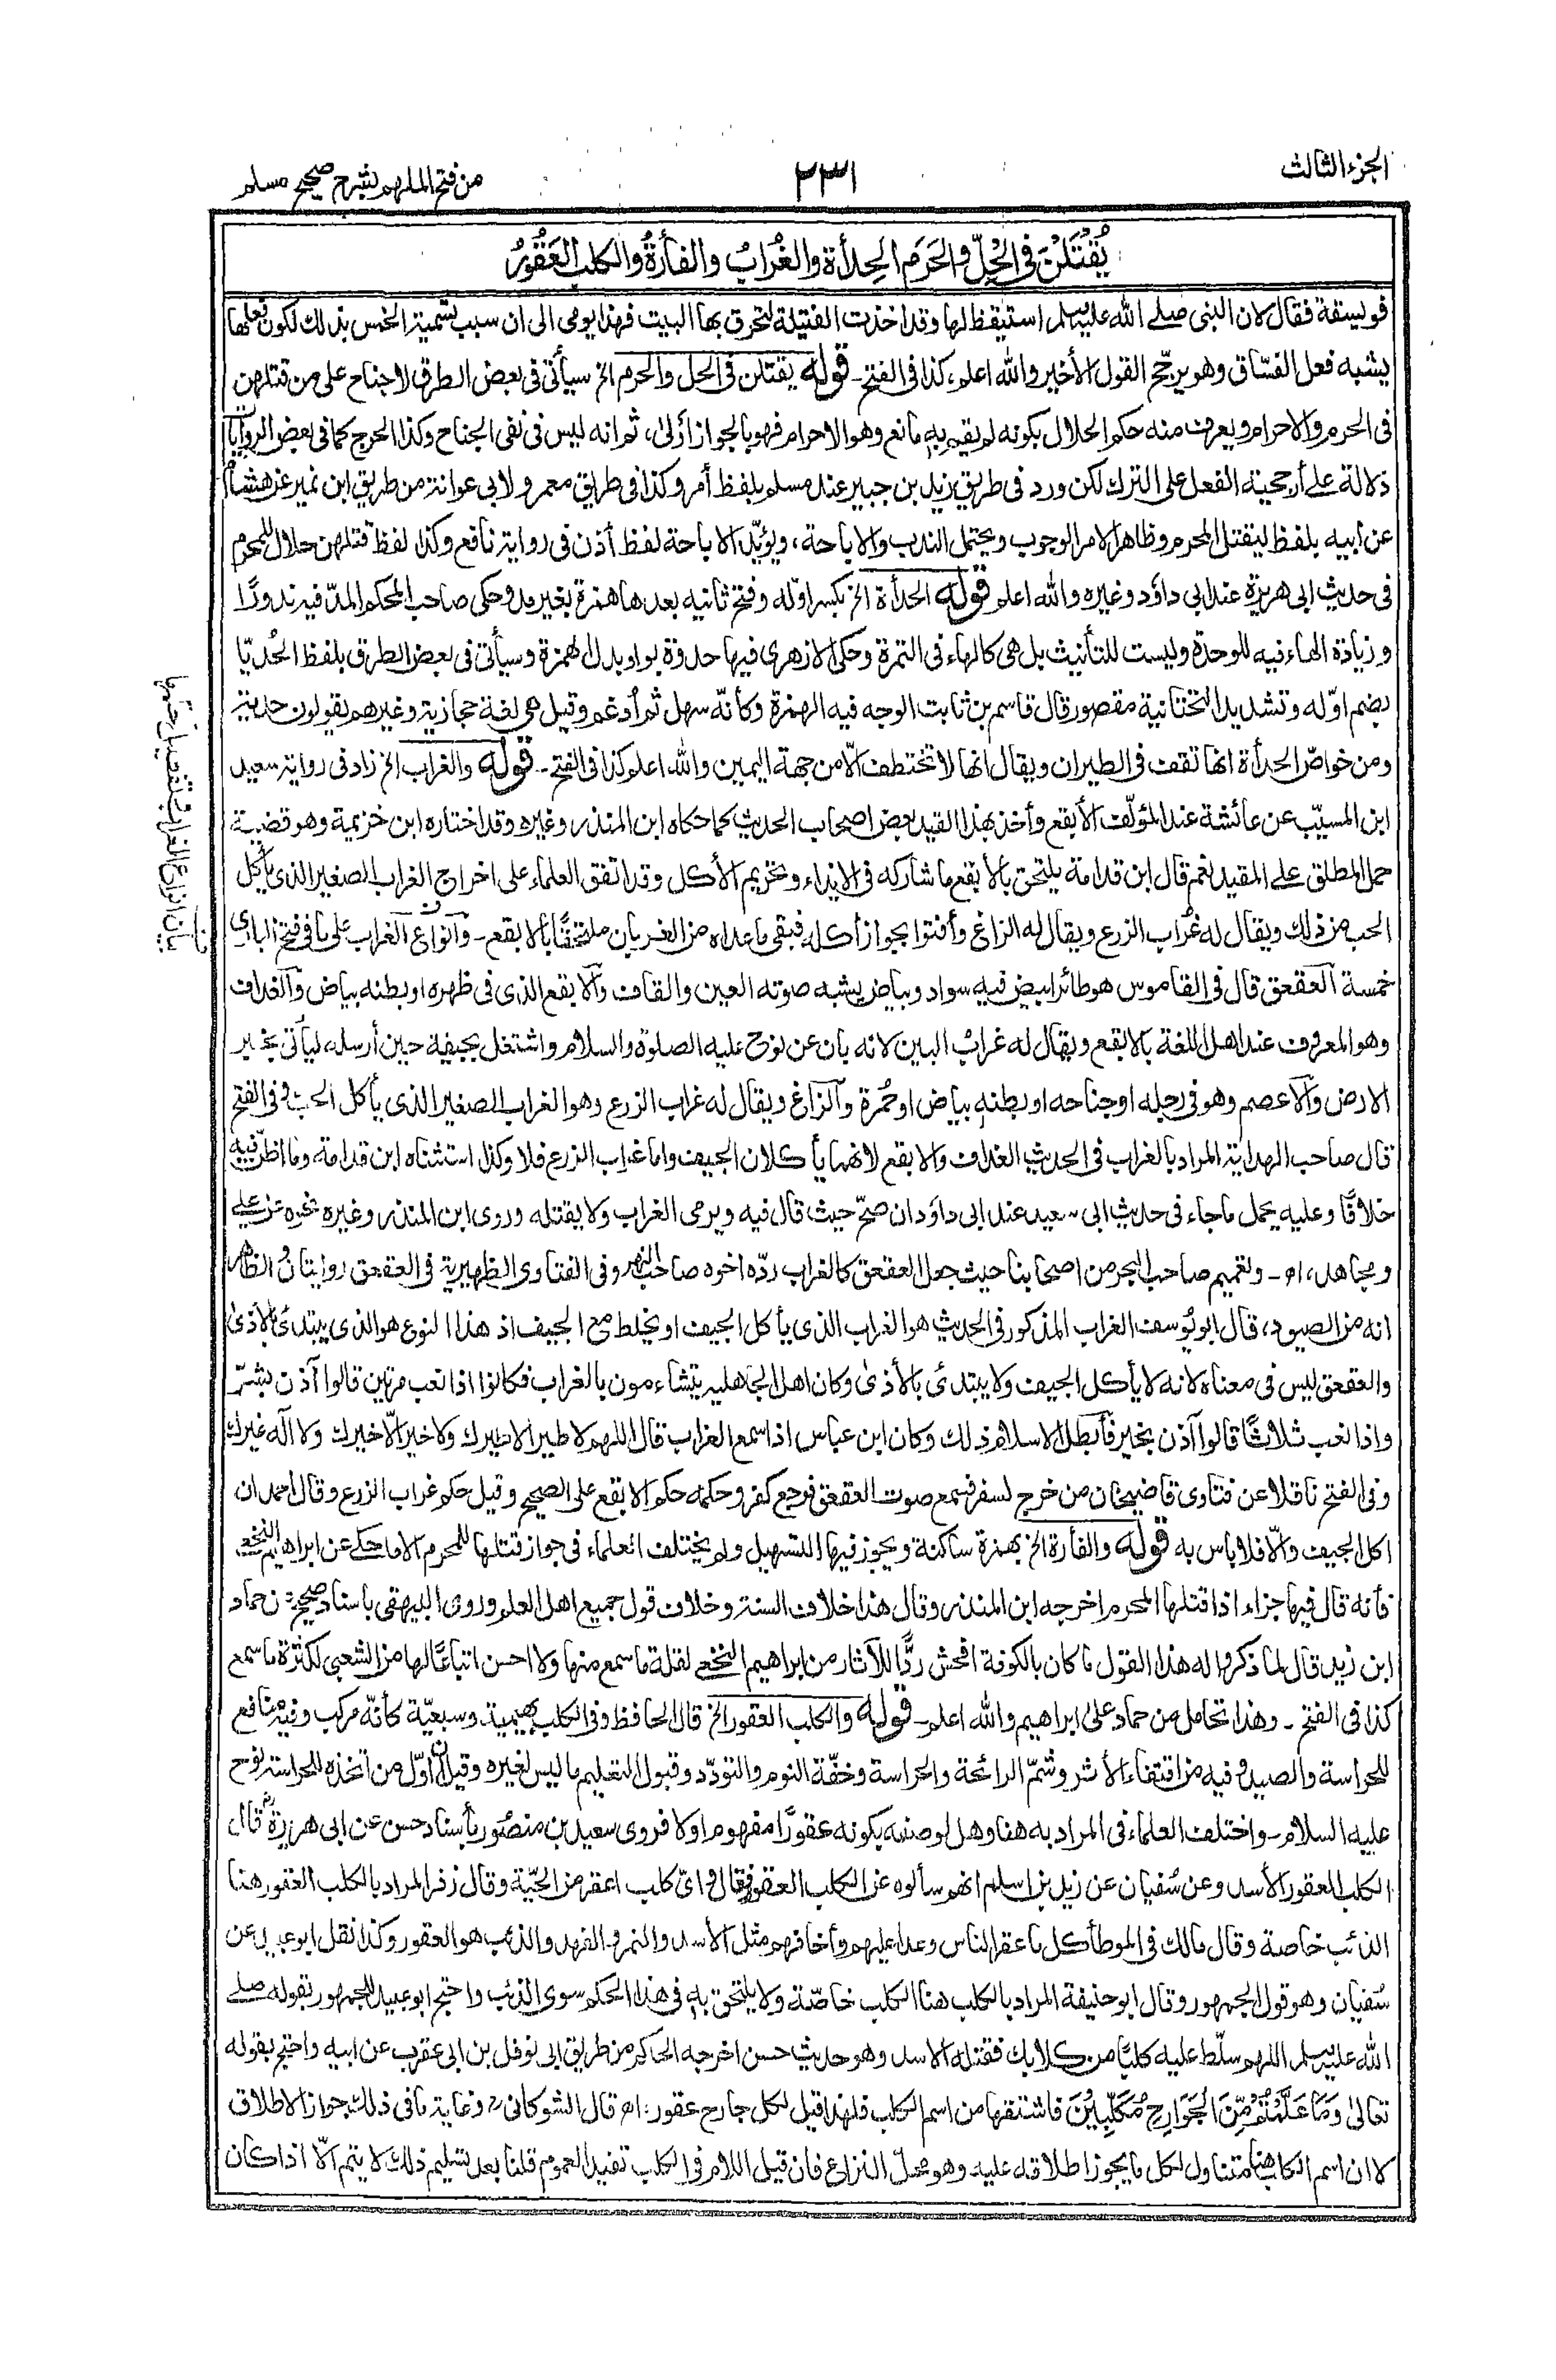 الجزء الثالث
٢٣١
من فتح الملهم بشرح صحيح مسلم
يُقْتَلْنَ فى الْحِلِّ والحَرَمِ الحِدأة والغُرَابُ والفأرةُ والكلبُ العَقُورُ
فويسقة فقال لان النبى صلى الله عليه وسلم استيقظ لها وقد اخذت الفتيلة لتحرق بها البيت فهذا يومى الى ان سبب تسمية الخمس بذلك لكون فعلها
يشبه فعل الفسّاق وهو يرجّح القول الأخير والله اعلم، كذا فى الفتح ـ قوله يقتلن فى الحل والحرم الخ سيأتى فى بعض الطرق لا جناح على من قتلهن
فى الحرم والاحرام ويعرف منه حكم الحلال بكونه لم يقم به مانع وهو الاحرام فهو بالجواز أولىٰ، ثم انه ليس فى نفى الجناح وكذا الحرج كما فى بعض الروايات
دلالة على أرجحية الفعل على الترك لكن ورد فى طريق زيد بن جبير عند مسلم بلفظ أمر وكذا فى طريق معمر ولابى عوانة من طريق ابن نمير عن هشام
عن ابيه بلفظ ليقتل المحرم وظاهر الامر الوجوب ويحتمل الندب والاباحة، ويؤيّد الاباحة لفظ أذن فى رواية نافع وكذا لفظ قتلهن حلال للمحرم
فى حديث ابى هريرة عند ابى داؤد وغيره والله اعلم قوله الحدأة الخ بكسر اوّله وفتح ثانيه بعدها همزة بغير مد وحكى صاحب المحكم المدّ فيه ندورًا
وزيادة الهاء فيه للوحدة وليست للتأنيث بل هى كالهاء فى التمرة وحكى الازهرى فيها حدوة بواو بدل الهمزة وسيأتى فى بعض الطرق بلفظ الحُديّا
بضم اوّله وتشديد التحتانية مقصور قال قاسم بن ثابت الوجه فيه الهمزة وكأنّه سهل ثم أدغم وقيل هى لغة حجازية وغيرهم يقولون حدية
ومن خواصّ الحدأة انها تقف فى الطيران ويقال انها لا تختطف الّا من جهة اليمين والله اعلم كذا فى الفتح ـ قوله والغراب الخ زاد فى رواية سعيد
ابن المسيّب عن عائشة عند المؤلّف الأبقع وأخذ بهذا القيد بعض اصحاب الحديث كما حكاه ابن المنذر وغيره وقد اختاره ابن خزيمة وهو قضية
حمل المطلق على المقيد نعم قال ابن قدامة يلتحق بالأبقع ما شاركه فى الايذاء وتحريم الأكل وقد اتفق العلماء على اخراج الغراب الصغير الذى يأكل
الحب من ذلك ويقال له غُراب الزرع ويقال له الزاغ وأفتوا بجواز أكله فبقى ما عداه من الغربان ملتحقًا بالابقع ـ وانواع الغراب على ما فى فتح البارى
خمسة العقعق قال فى القاموس هو طائر ابيض فيه سواد وبياض يشبه صوته العين والقاف والابقع الذى فى ظهره او بطنه بياض والغداف
وهو المعروف عند اهل اللغة بالابقع ويقال له غرابُ البين لانه بان عن نوح عليه الصلوة والسلام واشتغل بجيفة حين أرسله ليأتى بخبر
الارض والاعصم وهو فى رجله او جناحه او بطنه بياض او حُمرة والزاغ ويقال له غراب الزرع وهو الغراب الصغير الذى يأكل الحب وفى الفتح
قال صاحب الهداية المراد بالغراب فى الحديث الغداف والابقع لانهما يأكلان الجيف واما غراب الزرع فلا وكذا استثناه ابن قدامة، وما اظنّ فيه
خلافًا وعليه يحمل ما جاء فى حديث ابى سعيد عند ابى داؤد ان صحّ حيث قال فيه ويرمى الغراب ولا يقتله وروى ابن المنذر وغيره نحوه عن على
ومجاهد، اھ ـ وتعميم صاحب البحر من اصحابنا حيث جعل العقعق كالغراب ردّه اخوه صاحب النهر وفى الفتاوى الظهيرية فى العقعق روايتان والظاهر
انه من الصيود، قال ابو يُوسف الغراب المذكور فى الحديث هو الغراب الذى يأكل الجيف او يخلط مع الجيف اذ هذا النوع هو الذى يبتدئ بالاذىٰ
والعقعق ليس فى معناه لانه لا يأكل الجيف ولا يبتدئ بالأذىٰ وكان اهل الجاهلية يتشاءمون بالغراب فكانوا اذا نعب مرتين قالوا آذن بشرّ
واذا نعب ثلاثًا قالوا آذن بخير فأبطل الاسلام ذلك وكان ابن عباس اذا سمع الغراب قال اللهم لا طير الا طيرك ولا خير الّا خيرك ولا آله غيرك
وفى الفتح ناقلا عن فتاوى قاضيخان من خرج لسفر فسمع صوت العقعق فرجع كفر وحكمه حكم الابقع على الصحيح وقيل حكم غراب الزرع وقال احمد ان
اكل الجيف والّا فلا باس به قوله والفأرة الخ بهمزة ساكنة ويجوز فيها التسهيل ولم يختلف العلماء فى جواز قتلها للمحرم الا ما حكى عن ابراهيم النخعى
فأنه قال فيها جزاء اذا قتلها المحرم اخرجه ابن المنذر وقال هذا خلاف السنة وخلاف قول جميع اهل العلم وروى البيهقى باسناد صحيح عن حماد
ابن زيد قال لما ذكروا له هذا القول ما كان بالكوفة افحش ردًّا للآثار من ابراهيم النخعى لقلة ما سمع منها ولا احسن اتباعًا لها من الشعبى لكثرة ما سمع
كذا فى الفتح ـ وهذا تحامل من حماد علىٰ ابراهيم والله اعلم ـ قوله والكلب العقور الخ قال الحافظ وفى الكلب بهيمية وسبعيّة كأنّه مركب وفيه منافع
للحراسة والصيد وفيه من اقتفاء الأثر وشمّ الرائحة والحراسة وخفّة النوم والتودّد وقبول التعليم ما ليس لغيره وقيل ان اوّل من اتخذه للحراسة نوح
عليه السلام ـ واختلف العلماء فى المراد به هنا وهل لوصفه بكونه عقورًا مفهوم اولا فروى سعيد بن منصُور بأسناد حسن عن ابى هريرة قال
الكلب العقور الأسد وعن سُفيان عن زيد بن اسلم انهم سألوه عن الكلب العقور فقال واىّ كلب اعقر من الحيّة وقال زفر المراد بالكلب العقور هنا
الذئب خاصة وقال مالك فى الموطأ كل ما عقر الناس وعدا عليهم وأخافهم مثل الأسد والنمر والفهد والذئب هو العقور وكذا نقل ابو عبيد عن
سُفيان وهو قول الجمهور وقال ابو حنيفة المراد بالكلب هنا الكلب خاصّة ولا يلتحق به فى هذا الحكم سوى الذئب واحتج ابو عبيد للجمهور بقوله صلى
الله عليه وسلم اللهم سلّط عليه كلبًا من كلابك فقتله الاسد وهو حديث حسن اخرجه الحاكم من طريق ابى نوفل بن ابى عقرب عن ابيه واحتج بقوله
تعالىٰ وَمَا عَلَّمْتُمْ مِّنَ الْجَوَارِحِ مُكَلِّبِيْنَ فاشتقها من اسم الكلب فلهذا قيل لكل جارح عقور، اھ قال الشوكانى وغاية ما فى ذلك جواز الاطلاق
لا ان اسم الكلب هنا متناول لكل ما يجوز اطلاقه عليه وهو محلّ النزاع فان قيل اللام فى الكلب تفيد العموم قلنا بعد تسليم ذلك لا يتم الّا اذا كان
بيان انواع الغراب